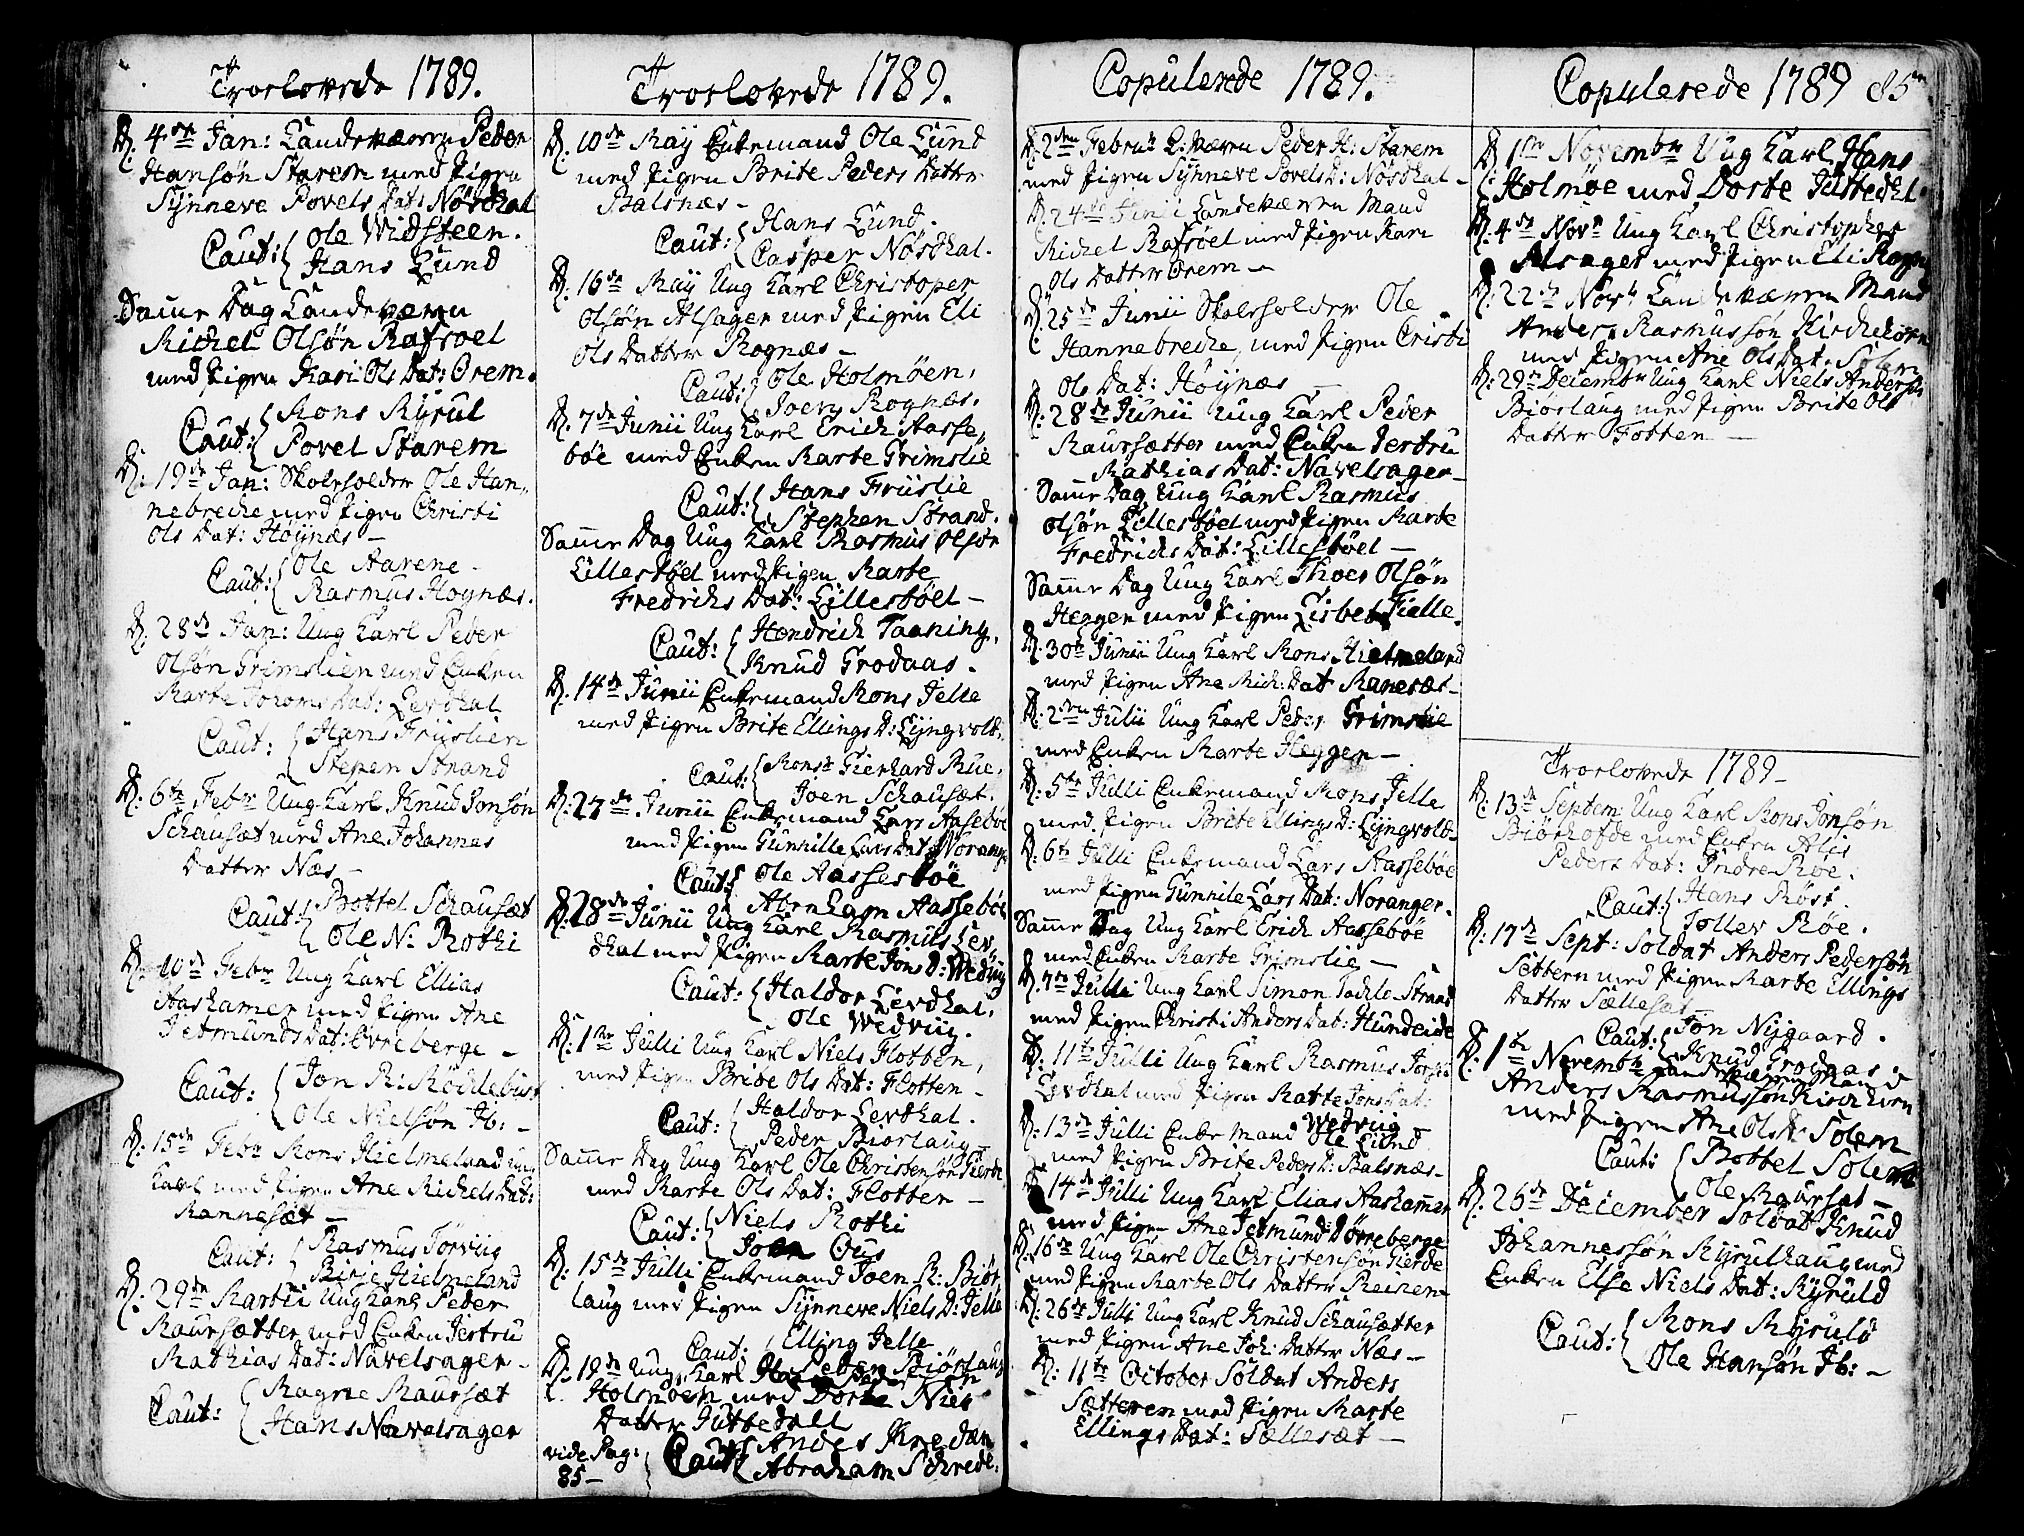 Trolovede 1789.
D. 4de Jan: Landeværn Peder
Hansøn Starem med Pigen
Synneve Povels Dat: Nøsdhal
Caut: Ole Widsteen.
Hans Lund
Samme Dag Landeværn
Michel Olsøn Rafsoel
med Pigen Kari Ols Dat: Orem.
Caut: Mons Myrul
Povel Starem
D. 19de Jan: Skoleholder Ole Han-
nebreche med Pigen Christi
Ols Dat: Høynæs –
Caut: Ole Aarene –
Rasmus Hoynæs.
D. 28de Jan: Ung Karl Peder
Olsøn Grimslien med Enken
Marte Dat: Levdhal
Caut: Hans Friislien
Stepen Strand
D. 6te Febr Ung Karl Knud Jonsøn
Schausæt med Ane Johannes
Datter Næs –
Caut: Bottel Schausæt
Ole N: Rothi
D. 10de Febr Ung Karl Ellias
Aashamer med Pigen Ane
Jetmunds Dat: Øvreberge –
Caut: Jon R: Møchlebust
Ole Nielsøn Ib: –
D. 15de Febr Mons Hielmeland ung
Karl med Pigen Ane Michels Dat:
Mannesæt –
Caut: Rasmus Torviig
Hielmeland
D. 29de Martii Ung Karl Peder
Maursætter med Enken Jertru
Mathias Dat: Navelsager –
Caut: Magne Maursæt
Hans Navelsager
Trolovede 1789.
D. 10de May Enkemand Ole Lund
med Pigen Brite Peders Datter
Balsnæs –
Caut: Hans Lund.
Casper Nøsdhal.
D. 16de May Ung Karl Christoper
Olsøn Alsager med Pigen Eli
Ols Datter Rognæs –
Caut: Ole Holmöen,
Joen Rognæs.
D. 7de Junii Ung Karl Erich Aasse-
böe med Enken Marte Grimslie
Caut: Hans Friislie
Stephen Strand.
Samme Dag Ung Karl Rasmus Olsøn
Lillestøel med Pigen Marte
Fredrichs Dat: Lillestöel –
Caut: Hendrich Taaning,
Knud Grodaas.
D. 14de Junii Enkemand Mons Jelle
med Pigen Brite Ellings D: Lyngvold.
Caut: Monsr Gierhard Mue,
Joen Schausæt.
D. 27de Junii Enkemand Lars Aasebøe
med Pigen Gunnille Lars Dat: Norange
Caut: Ole Aassesböe
Abraham Aasseböe
D. 28de Junii Ung Karl Rasmus Lev-
dhal med Pigen Marte Jons D: Wedviig
Caut: Haldor Levdhal,
Ole Wedviig.
D. 1ste Julli Ung Karl Niels Flotten,
med Pigen Brite Ols Dat: Flotten –
Caut: Haldor Levdhal.
Peder Biørlaug –
Samme Dag Ung Karl Ole Christensøn Gierde
med Marte Ols Dat: Flotten –
Caut: Niels Rothi
Joen Ous
D. 15de Julli Enkemand Joen R: Biør-
laug med Pigen Synneve Niels D: Jelle
Caut: Elling Jelle
Peder Biørlaug
D. 18de Ung Karl
Holmöen med Dorte Niels
Datter Juttedall
Caut: Andes Kredam
Abraham Schrede.
vide Pag:
85 –
Copulerede 1789.
D. 2den Februr L:værn Peder H: Starem
med Pigen Synneve Povels D: Nösdhal –
D. 24de Junii Landeværn Mand
Michel Rafsöel med Pigen Kari
Ols Datter Orem –
D. 25de Junii Skoleholder Ole
Hannebreche, med Pigen Cristi
Ols Dat: Höynæs –
D. 28de Junii Ung Karl Peder
Maursætter med Enken Jertru
Mathias Dat: Navelsager –
Samme Dag Ung Karl Rasmus
Olsøn Lillestöel med Pigen Marte
Fredrichs Dat: Lillestöel –
Samme Dag Ung Karl Thoer Olsøn
Heggen med Pigen Lisbet Fialle.
D. 30te Junii Ung Karl Mons Hielmeland
med Pigen Ane Mich: Dat Manesæt –
D. 2den Julii Ung Karl Peder Grimslie
med Enken Marte Heggen –
D. 5te Julli Enkemand Mons Jelle
med Pigen Brite Ellings D: Lyngvold –
D. 6te Julli Enkemand Lars Aasseböe
med Pigen Gunnile Lars Dat: Noranger.
Samme Dag Ung Karl Erich Aasseböe
med Enken Marte Grimslie –
D. 7de Julli Ung Karl Simon Tachlo Strand
med Pigen Christi Anders Dat: Hundeide
D. 11te Julli Ung Karl Rasmus
Levdhal med Pigen Marte Jons Dat:
Wedviig –
D. 13de Julli Enke Mand Ole Lund
med Pigen Brite Peders D: Balsnæs –
D. 14de Julli Ung Karl Elias Aashamer
med Pigen Ane Jetmunds D: Øvreberge
D. 16de Ung Karl Ole Christensøn Gierde
med Pigen Marte Ols Datter
D. 26de Julli Ung Karl Knud Schausætter
med Pigen Ane Joh: Datter Næs –
D. 11te October Soldat Anders
Sætteren med Pigen Marte
Ellings Dat: Sællesæt –
Copulerede 1789 85
D. 1ste Novembr Ung Karl Hans
Holmöe med Dorte Justedhl.
D. 4de Novr Ung Karl Christopher
Alsager med Pigen Eli
D. 22de Novr Landeværn Mand
Anders Rasmussøn Kirchehorn
med Pigen Ane Ols Dat: Solem
D. 29de Decembr Ung Karl Niels Andersøn
Biørlaug med Pigen Brite Ols
Datter Fotten –
Trolovede 1789 –
D. 13de Septem Ung Karl Mons Jonsøn
Biørhofde med Enken Alis
Peders Dat: Indre Röe.
Caut: Hans Röst.
Tollev Röe.
D. 17de Sept: Soldat Anders Pedersøn
Settern med Pigen Marte Ellings
Datter Sællesæt –
Caut: Jon Nygaard.
Knud Grodaas.
D. 1ste Novembr Landeværn Mand
Anders Rasmussøn Kirchhorn
med Pigen Ane Ols D: Solem
Caut: Bottel Solem
Ole Maursæt –
D. 26de December Soldat Knud
Johannessøn Myrulhaug med
Enken Else Niels Dat: Myruld
Caut: Mons Myruld
Ole Hansøn Ib: –